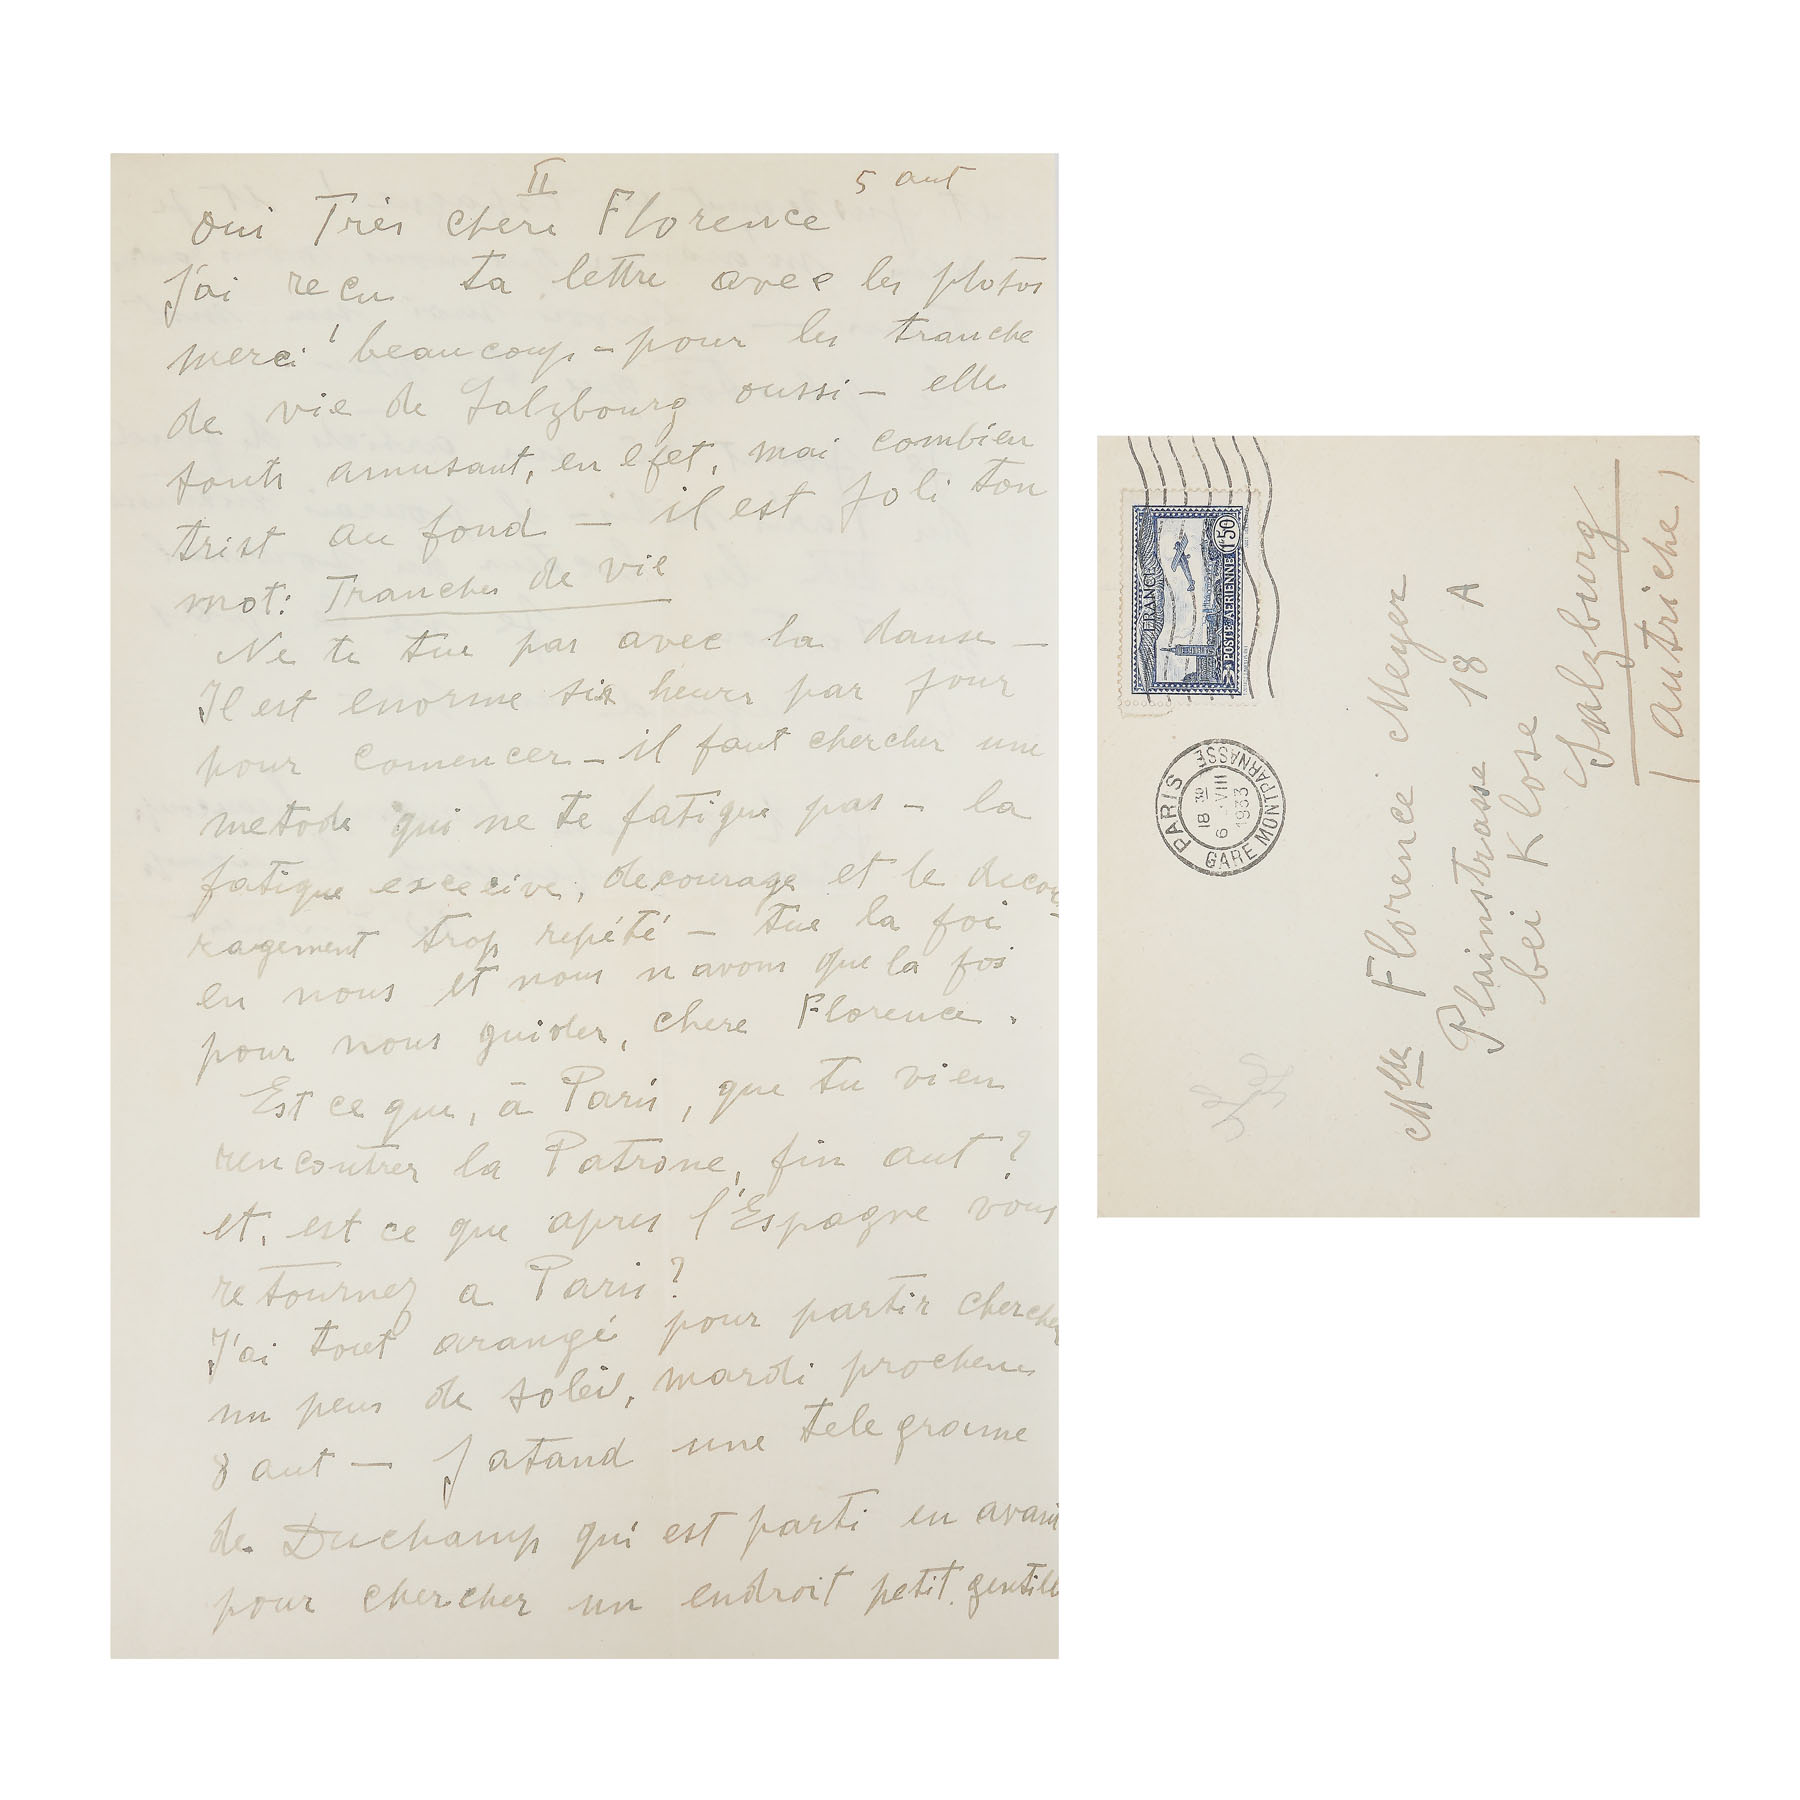 II
5 aut
Oui Très chere Florence
J'ai recu ta lettre avec les photos
merci beaucoup – pour les tranche
de vie de Salzbourg oussi – elle
sonts amusant, en efet, mai combien
trist au fond – il est joli ton
mot: Tranches de vie
Ne te tue pas avec la danse –
Il est enorme six heurs par jour
pour comencer – il faut chercher une
metode qui ne te fatigue pas – la
fatigue excecive, decourage et le decou-
ragement trop repété – tue la foi
en nous et nous n avons que la foi
pour nous guider, chere Florence.
Est ce que, à Paris, que tu vien
rencontrer la Patrone, fin aut ?
et, est ce que apres l'Espagne vous
retournez a Paris ?
J'ai tout arangé pour partir chercher
un peus de soleil, mardi prochens
8 aut – J atand une telegrame
de Duchamp qui est parti en avant
pour chercher un endroit petit, gentill
FRANCE
1F50
POSTE AERIENNE
PARIS
18 30
6 - VIII
1933
GARE MONTPARNASSE
Mlle Florence Meyer
Plainstrasse 18 A
bei Klose
Salzburg
(autriche)